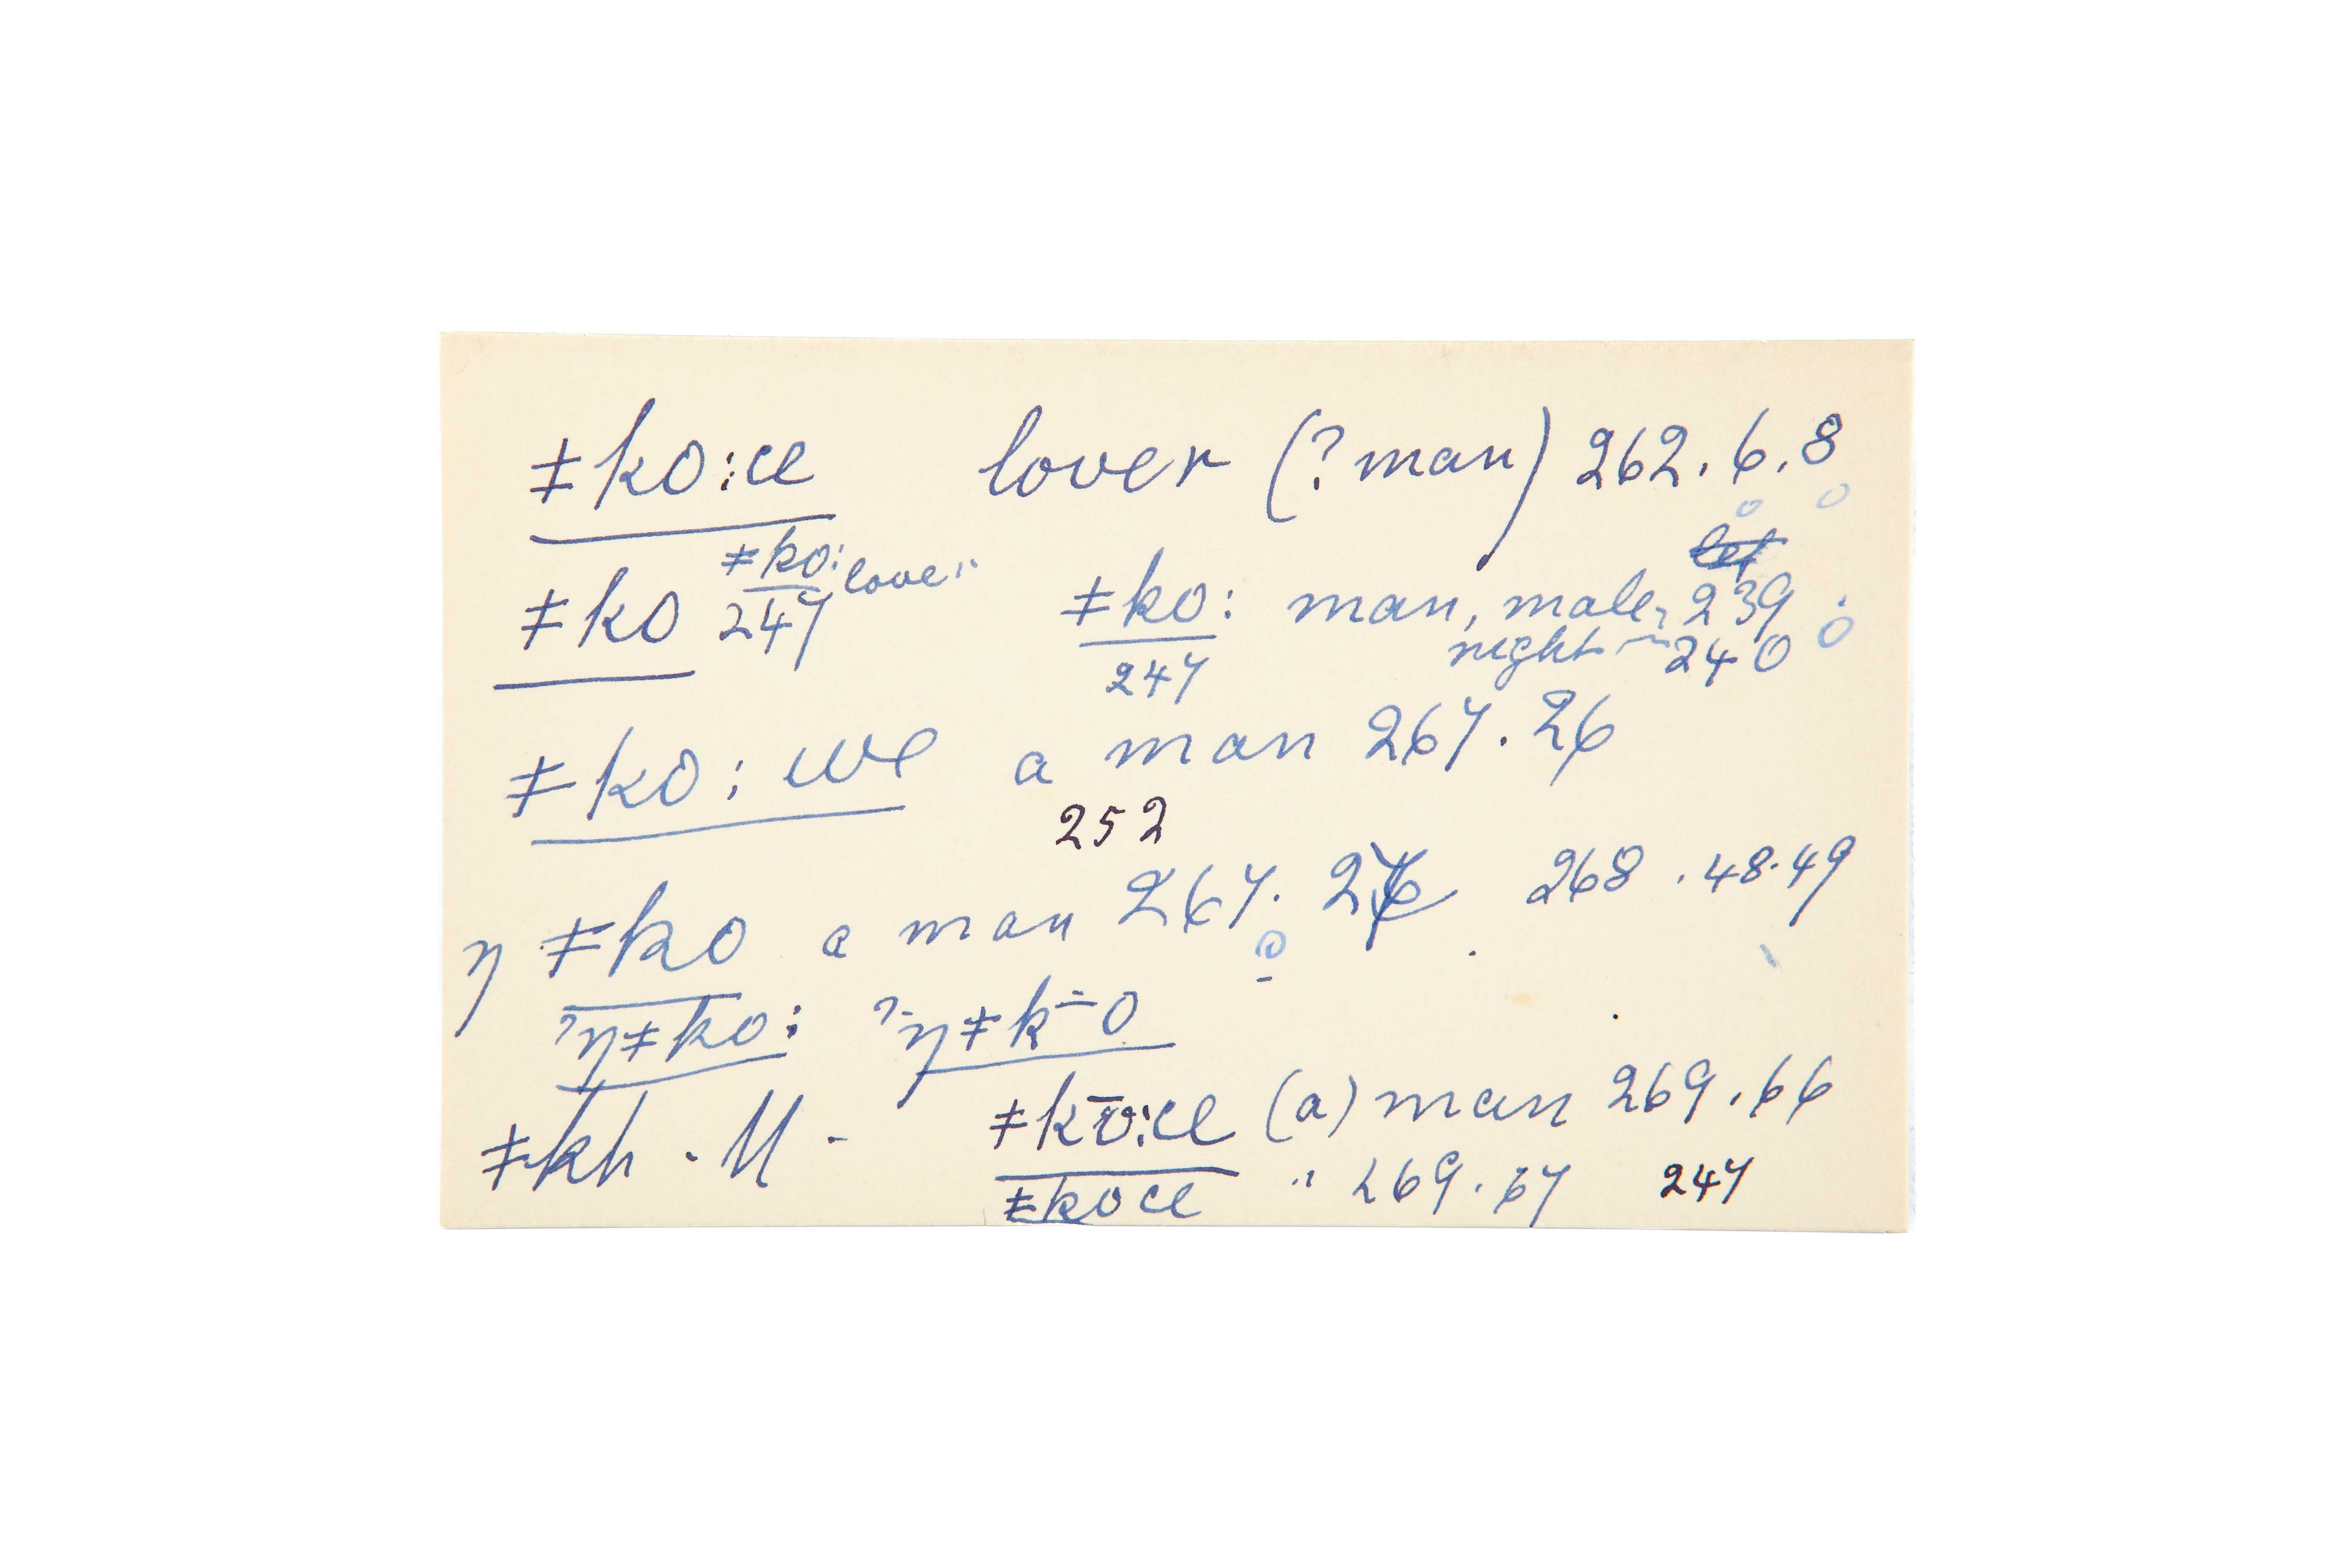 ǂko:ce lover (? man) 262.6.8
ǂko: lover
ǂko 247 ǂko: man, male, 239
247 right 240
ǂko: we a man 267.26
252
ŋ ǂko a man 267. 268 .48.49
ʔŋǂko: ʔŋǂk=o
ǂkh · ǁ - ǂkō:ce (a) man 269.66
ǂkoce " 269.67 247